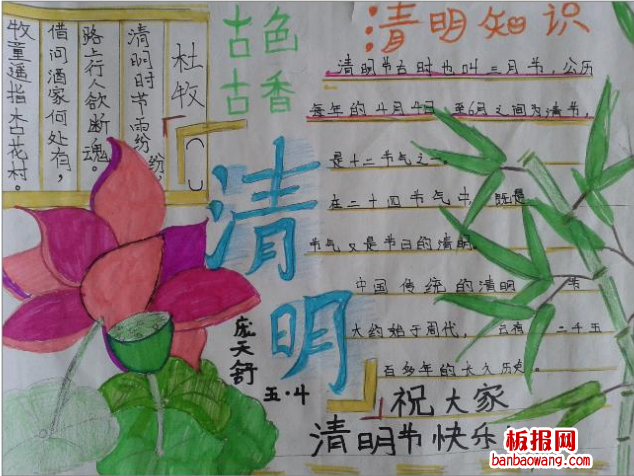 古色
古香
杜牧
清明时节雨纷纷,
路上行人欲断魂。
借问酒家何处有,
牧童遥指杏花村。
清明
庞天舒
五·4
清明知识
清明节古时也叫三月节,公历
每年的4月4日 至6月之间为清节,
是十二节气之一。
在二十四节气中, 既是
节气又是节日的清明。
中国传统的清明 节
大约始于周代, 已有二千五
百多年的长久历史。
祝大家
清明节快乐
板报网
banbaowang.com